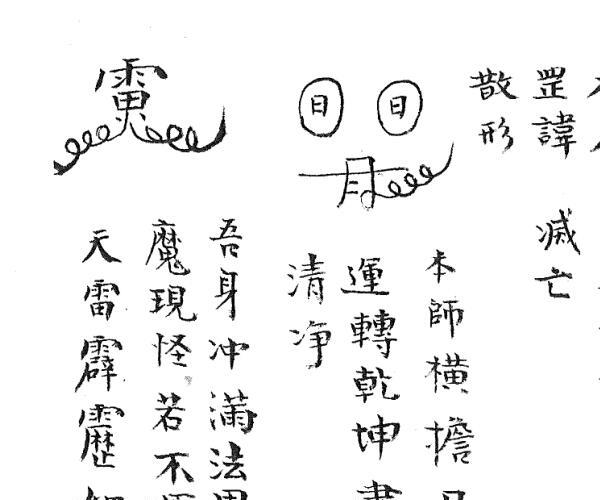 罡諱 滅亡
散形
日 日
月
本師橫擔
運轉乾坤
清净
吾身冲滿法
魔現怪若不
天雷霹靂